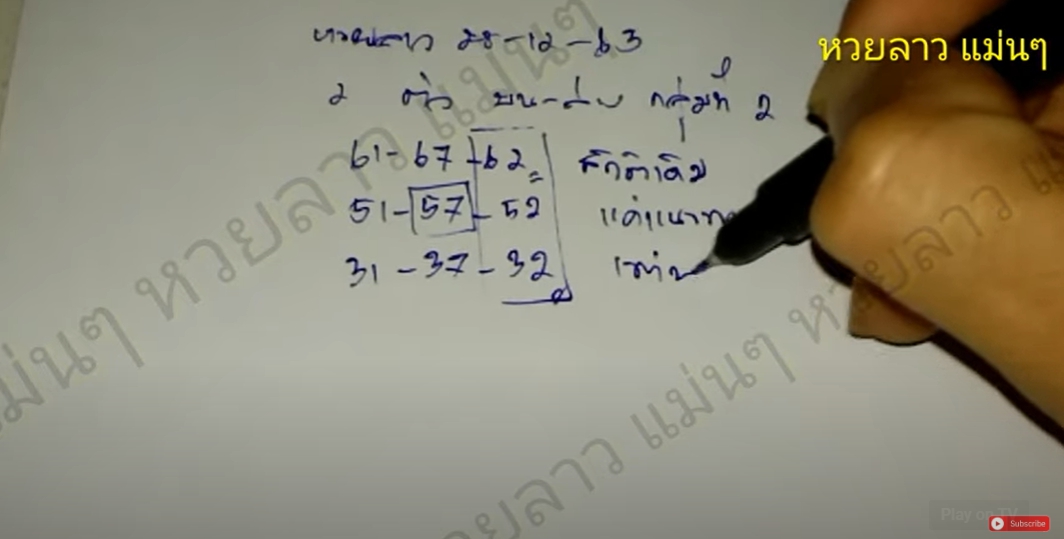 หวยลาว แม่นๆ
หวยลาว 28-12-63
2 ตัว บน-ล่าง กลุ่มที่ 2
61-67-62
51-57-52
31-37-32
สถิติเดิม
หวยลาว แม่นๆ หวยลาว แม่นๆ
หวยลาว แม่นๆ หวยลาว แม่นๆ
Play on TV
Subscribe